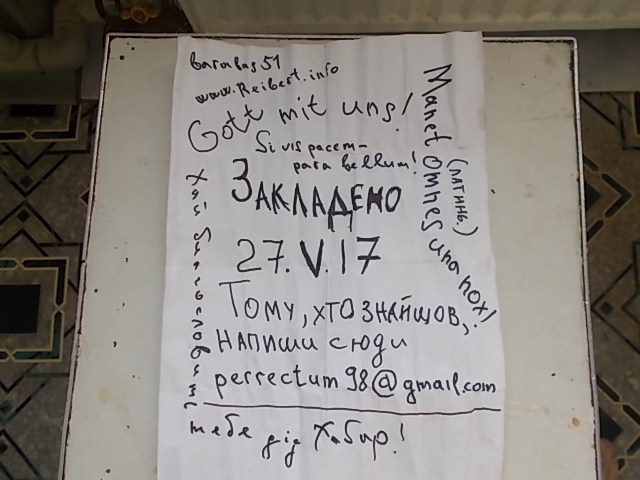 barabas51
www.Reibert.info
Gott mit uns!
Si vis pacem-
para bellum!
Manet omnes una nox!
(латинь.)
Закладено
27.V.17
Тому, хто знайшов,
напиши сюди
perrectum98@gmail.com
Хай благословить
тебе дід Хабар!